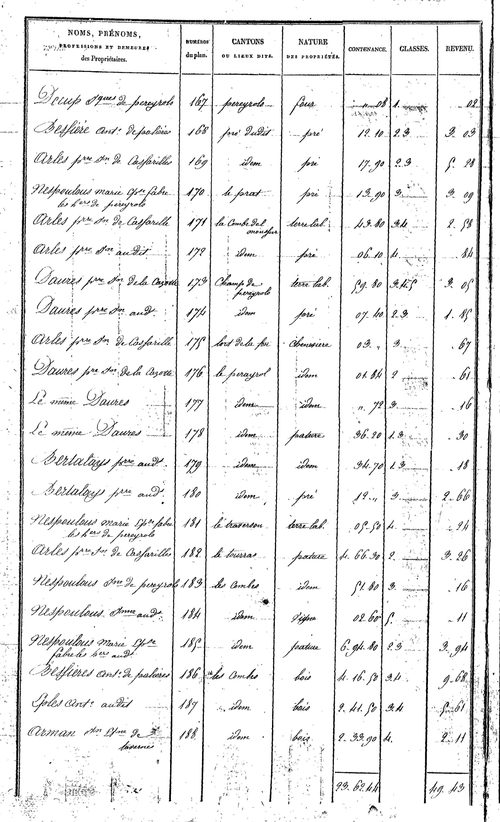 NOMS, PRÉNOMS, PROFESSIONS ET DEMEURES des Propriétaires. NUMÉROS du plan. CANTONS OU LIEUX DITS. NATURE DES PROPRIÉTÉS. CONTENANCE. CLASSES. REVENU.
de pereyrols 167 pereyrols four " 08 1. 02
Bessière ant: de palières 168 pré dudit pré 12.10 2.3 3.03
Arles pre jn de Casfarills 169 idem pré 17.90 2.3 5.28
Nespoulous marie fabre 170 le prat pré 13.90 3. 3.09
les hers de pereyrols
Arles pre jn de Casfarills 171 la Combe del terre lab. 43.80 3.4 2.58
Arles pre jn audit 172 idem pré 06.10 4. 84
Daures pre jn de la Cazotte 173 Champ de pereyrols terre lab. 59.80 3.4.5 3.05
Daures pre jn aud. 174 idem pré 07.40 2.3 1.85
Arles pre jn de Casfarills 175 03. " 3 67
Daures pre jn de la Cazotte 176 le pereyrol idem 01.84 2 61
Le même Daures 177 idem idem " 72 3 16
Le même Daures 178 idem pature 36.20 1.3 30
pre aud. 179 idem idem 34.70 1.3 18
pre aud. 180 idem pré 12. " 3 2.66
Nespoulous marie fabre 181 le traverson terre lab. 05.50 4. 24
les hers de pereyrols
Arles pre jn de Casfarills 182 le pature 4.66.30 2. 3.26
Nespoulous de pereyrols 183 les Combes idem 51.80 3. 16
Nespoulous aud. 184 idem vigne 02.60 5. 11
Nespoulous Marie 185 idem pature 6.94.80 2.3 3.94
fabre les hers aud.
Bessières ant: de palières 186 les Combes bois 4.16.50 3.4 9.68
ant: audit 187 idem bois 2.41.50 3.4 5.61
Arman de 188 idem bois 2.33.90 4. 2.11
23.6244 49.43